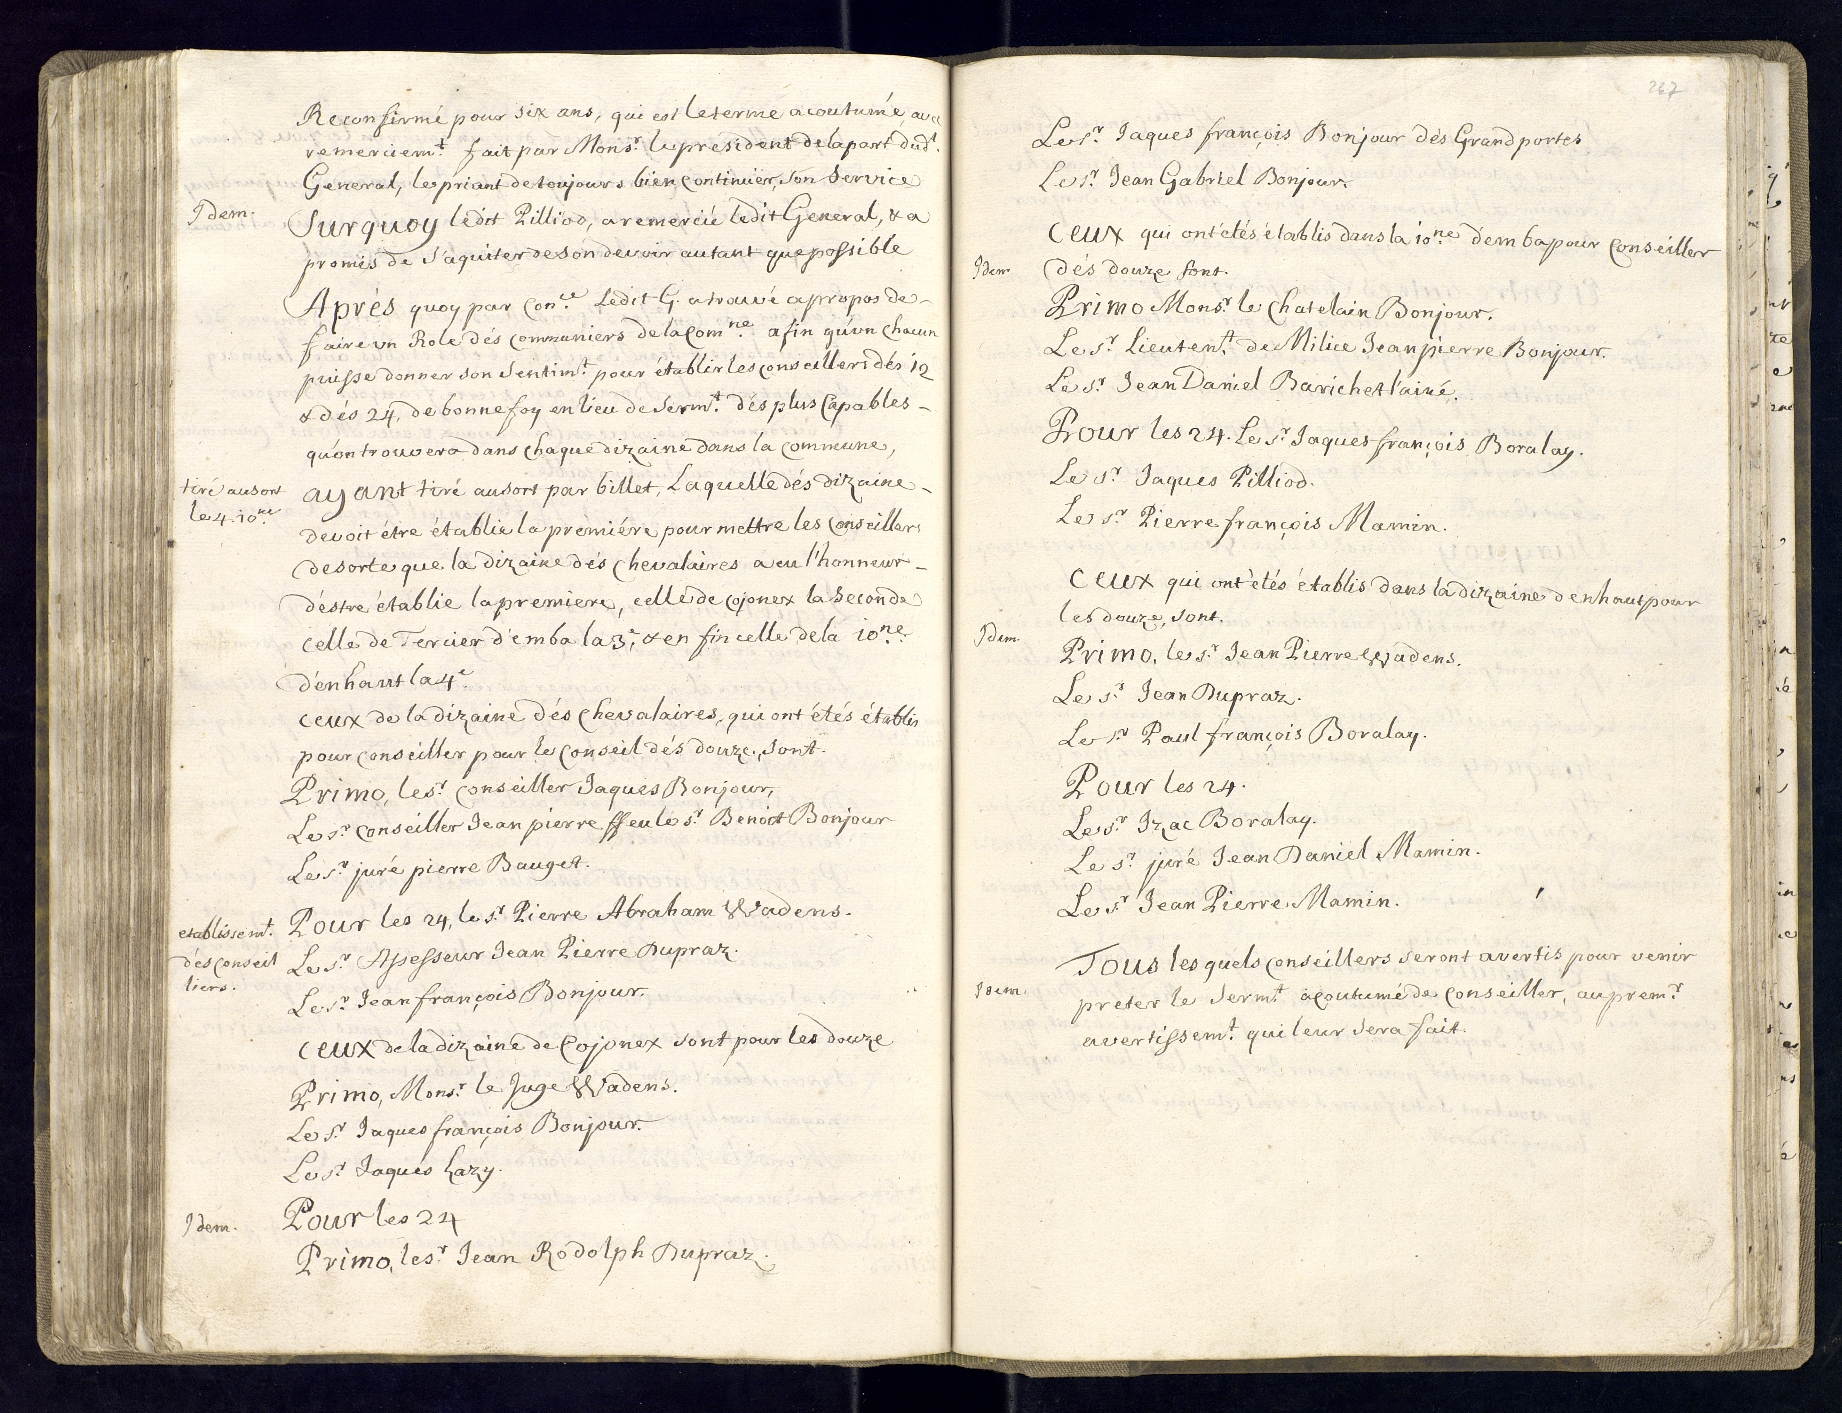 Reconfirmé pour six ans, qui est le terme acoutumé, avec
remerciem.t fait par Mons.r le president de la part dud.t
General, le priant de toujours bien continuer, son Service
Idem.
Surquoy ledit Pilliod, a remercié ledit General, & a
promis de S'aquiter de son devoir autant que possible
Aprés quoy par Con.ce Ledit G. a trouvé apropos de
faire vn Role dés communiers de la Com.ne afin qu'vn chacun
puisse donner son Sentim.t pour établir les conseillers dés 12
& dés 24, de bonne foy en lieu de Serm.t dés plus Capables
qu'on trouvera dans chaque dizaine dans la commune,
tiré au sort
le 4. 10.ne
ayant tiré au sort par billet, Laquelle dés dizaine
devoit étre établie la premiére pour mettre les conseillers
desorte que la dizaine dés chevalaires a eu l'honneur
d'éstre établie la premiere, celle de cojonex la Seconde
Celle de Tercier d'emba la 3.e, & en fin celle de la 10.ne
d'enhaut la 4.e
Ceux de la dizaine dés chevalaires, qui ont étés établis
pour conseiller pour le conseil dés douze, Sont.
Primo, le s.r conseiller Jaques Bonjour,
Le s.r conseiller Jean pierre ffeu le s.r Benoit Bonjour
Le s.r juré pierre Bauget.
etablissem.t
dés conseil
liers.
Pour les 24, le s.r Pierre Abraham Wadens.
Le s.r Assesseur Jean Pierre Dupraz.
Le s.r Jean françois Bonjour.
Ceux de la dizaine de Cojonex sont pour les douze
Primo, Mons.r le Juge Wadens.
Le s.r Jaques françois Bonjour.
Le s.r Jaques hazy.
Idem.
Pour les 24
Primo, le s.r Jean Rodolph Dupraz.
267
Le s.r Jaques françois Bonjour dés Grand portes
Le s.r Jean Gabriel Bonjour.
Ceux qui ont étés établis dans la 10.ne d'emba pour Conseiller
Idem
dés douze sont.
Primo Mons.r le chatelain Bonjour.
Le s.r Lieuten.t de Milice Jean pierre Bonjour.
Le s.r Jean Daniel Barichet l'ainé.
Pour les 24. Le s.r Jaques françois Boralay.
Le s.r Jaques Pilliod.
Le s.r Pierre françois Mamin.
Ceux qui ont étés établis dans la dizaine d'enhaut pour
les douze, sont.
Idem
Primo, le s.r Jean Pierre Wadens.
Le s.r Jean Dupraz.
Le s.r Paul françois Boralay.
Pour les 24.
Le s.r Izac Boralay.
Le s.r juré Jean Daniel Mamin.
Le s.r Jean Pierre Mamin.
Tous lesquels conseillers seront avertis pour venir
Idem.
preter le Serm.t acoutumé de Conseiller, au prem.r
avertissem.t qui leur sera fait.